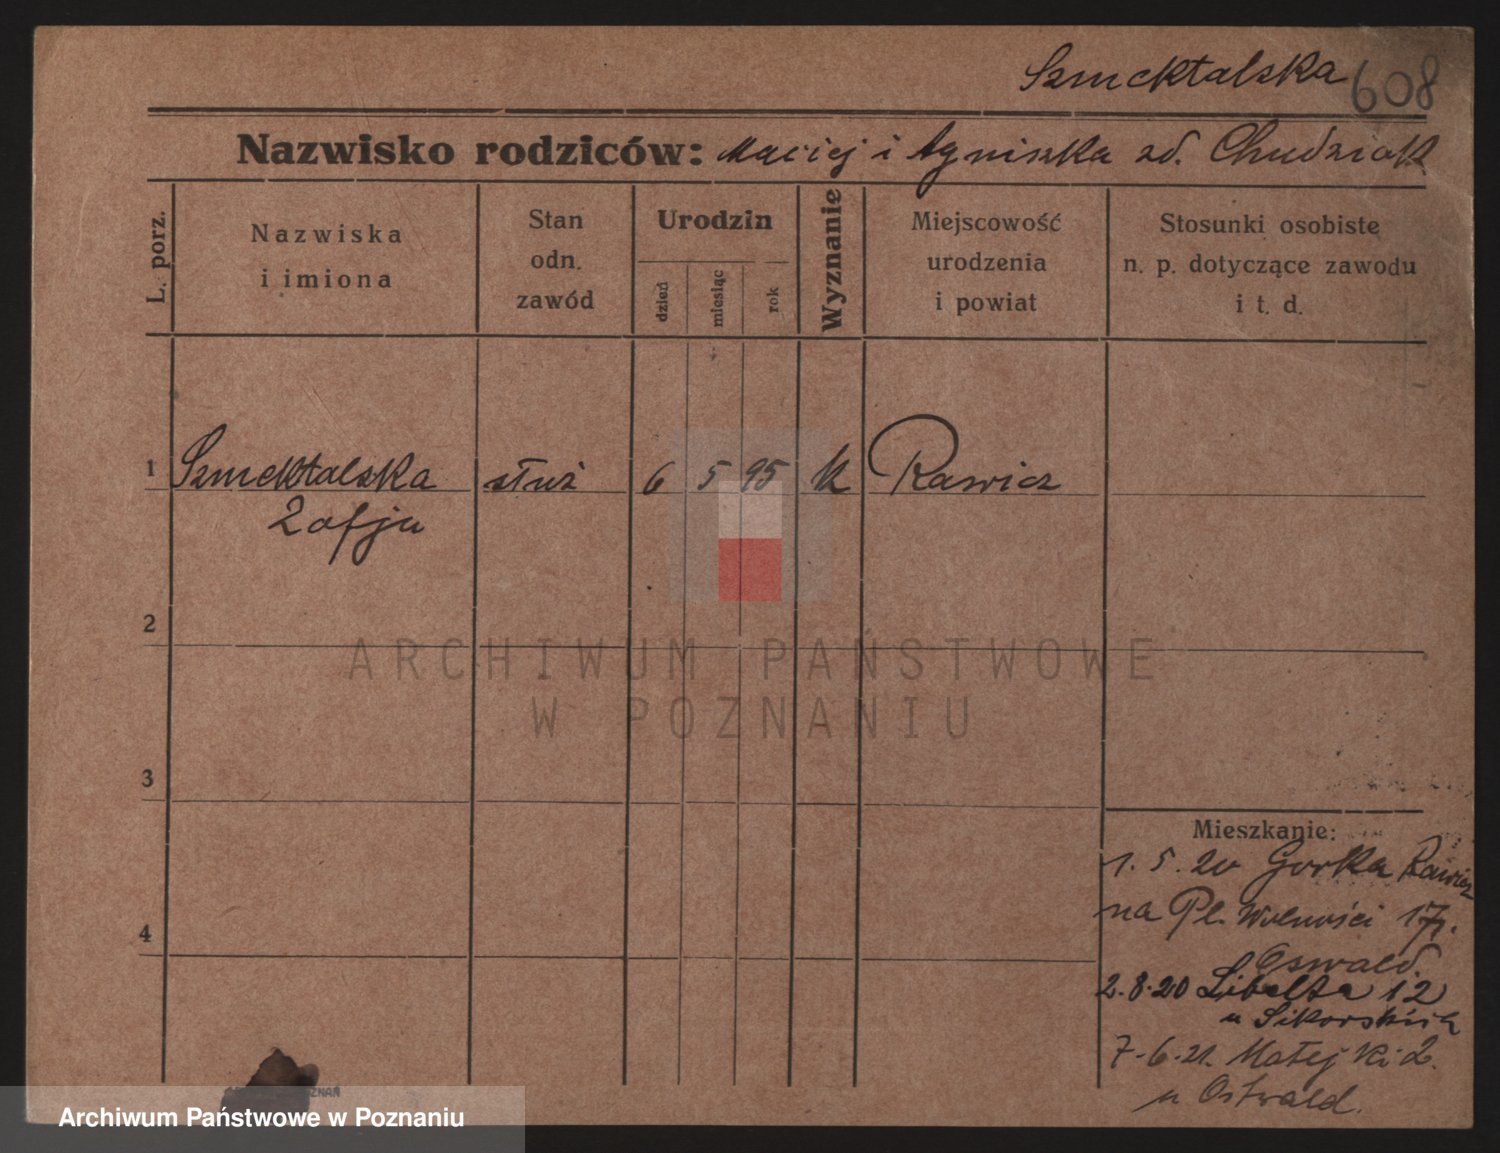 Szmektalska 608
Nazwisko rodziców: Maciej i Agniszka zd. Chudziak
L. porz.
Nazwiska
i imiona
Stan
odn.
zawód
Urodzin
dzień
miesiąc
rok
Wyznanie
Miejscowość
urodzenia
i powiat
Stosunki osobiste
n. p. dotyczące zawodu
i t. d.
1 Szmektalska służ 6 5 95 k Rawicz
Zofja
2
ARCHIWUM PAŃSTWOWE
W POZNANIU
3
Mieszkanie:
1.5.20 Gorka Rawicz
na Pl. Wolności 17
Oswald.
4
2.8.20 Libelta 12
u Sikorskich
7.6.21. Matejki 2.
u Ostwald.
Archiwum Państwowe w Poznaniu